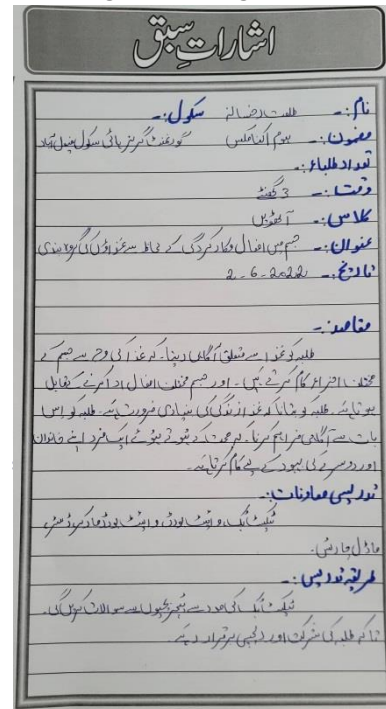 اشاراتِ سبق
نام:۔ طلعت رخسانہ سکول:۔
مضمون:۔ ہوم اکنامکس گورنمنٹ گرلز ہائی سکول
تعداد طلباء:۔
وقت:۔ 3 گھنٹے
کلاس:۔ آٹھویں
عنوان:۔ جسم میں افعال و کارکردگی کے لحاظ سے غذاؤں کی گروہ بندی
تاریخ:۔ 2-6-2022
مقاصد:۔
طلبہ کو غذا سے متعلق آگاہی دینا۔ کہ غذا کی وجہ سے جسم کے
مختلف اجزاء کام کرتے ہیں۔ اور جسم مختلف افعال ادا کرنے کے قابل
ہوتا ہے۔ طلبہ کو بتانا کہ غذا زندگی کی بنیادی ضرورت ہے۔ طلبہ کو اس
بات سے آگاہی فراہم کرنا۔ کہ صحت کے ہوتے ہوئے ایک فرد اپنے خاندان
اور دوسرے کی بہبود کے لیے کام کرتا ہے۔
تدریسی معاونات:۔
ٹیکسٹ بک، وائیٹ بورڈ، وائیٹ بورڈ مارکر، ڈسٹر،
ماڈل چارٹس۔
طریقہ تدریس:۔
ٹیکسٹ بک کی مدد سے ٹیچر بچوں سے سوالات کریں گی۔
تاکہ طلبہ کی شرکت اور دلچسپی برقرار رہے۔